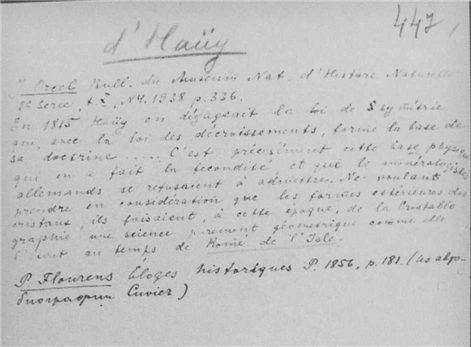 447
d'Haüy
J. Orcel Bull. du Museum Nat. d'Histoire Naturelle
2e Serie, t. X, N4, 1938 p. 336.
En 1815 Haüy en dégageait la loi de Symétrie
qui, avec la loi des décroissements, forme la base de
sa doctrine ..... C'est précisément cette base physique
qui en a fait la fécondité et que les minéralogistes
allemands se refusaient à admettre. Ne voulant
prendre en considération que les formes extérieures des
cristaux, ils faisaient, à cette époque, de la Cristallo
graphie une science purement géometrique comme elle
l'était au temps de Romé de l'Isle.
P. Flourens Eloges historiques P. 1856, p. 181. (из авто
биографии Cuvier)